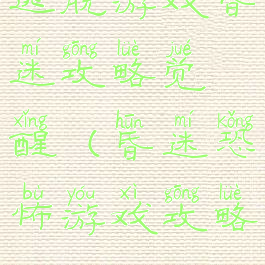 逃脱游戏昏
mí gōng lüè jué
迷攻略觉
xǐng hūn mí kǒng
醒(昏迷恐
bù yóu xì gōng lüè
怖游戏攻略